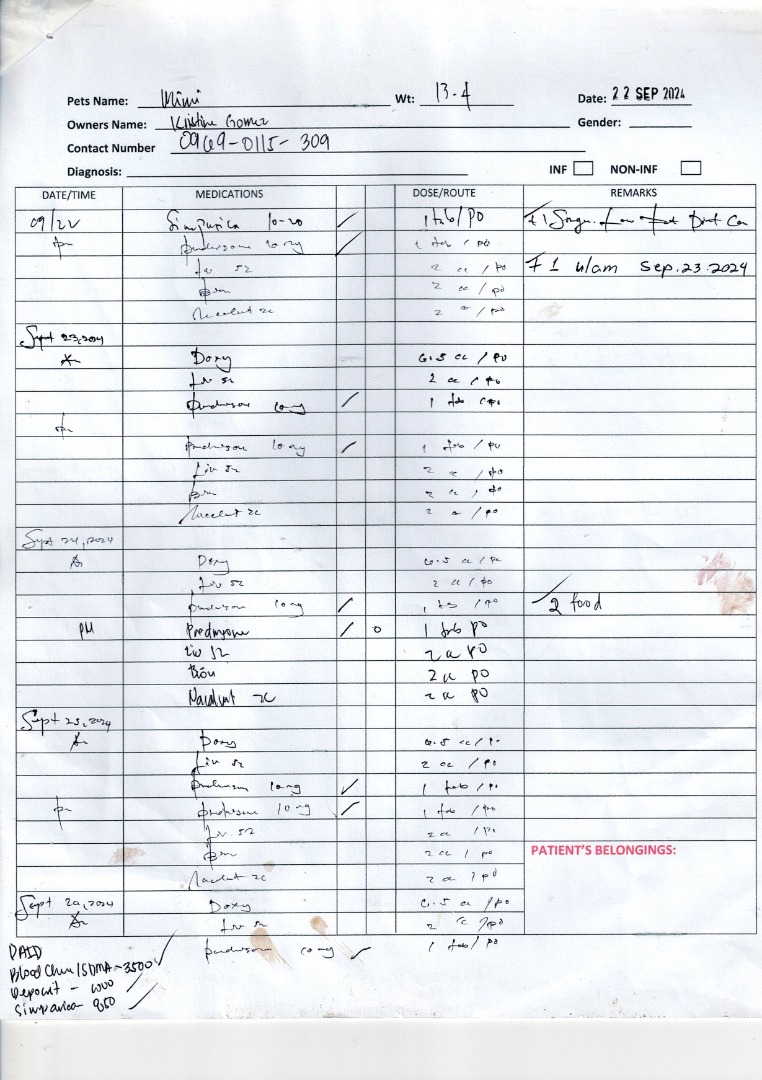 Pets Name: Mimi Wt: 13.4 Date: 22 SEP 2024
Owners Name: Kristine Gomez Gender:
Contact Number 0969-0115-309
Diagnosis: INF NON-INF
DATE/TIME MEDICATIONS DOSE/ROUTE REMARKS
09/22 Simparica 10-20 1 tab/PO
pm prednisone 10 mg 1 tab / po
Liv 52 2 cc / po F 1 u/am Sep.23.2024
2 cc / po
Nacalvit zc 2 cc / po
Sept 23, 2024
Am Doxy 6.5 cc / po
Liv 52 2 cc / po
prednisone 10 mg 1 tab / po
pm
prednisone 10 mg 1 tab / po
Liv 52 2 cc / po
2 cc / po
Nacalvit zc 2 cc / po
Sept 24, 2024
Am Doxy 6.5 cc / po
Liv 52 2 cc / po
prednisone 10 mg 1 tab / po 2 food
PM Prednisone 1 tab PO
Liv 52 2 cc PO
2 cc PO
Nacalvit zc 2 cc PO
Sept 25, 2024
Am Doxy 6.5 cc / po
Liv 52 2 cc / po
prednisone 10 mg 1 tab / po
pm prednisone 10 mg 1 tab / po
Liv 52 2 cc / po
2 cc / po PATIENT'S BELONGINGS:
Nacalvit zc 2 cc / po
Sept 26, 2024 Doxy 6.5 cc / po
Am Liv 52 2 cc / po
prednisone 10 mg 1 tab / po
PAID
Blood Chem/SDMA - 3500
Deposit -
Simparica - 850